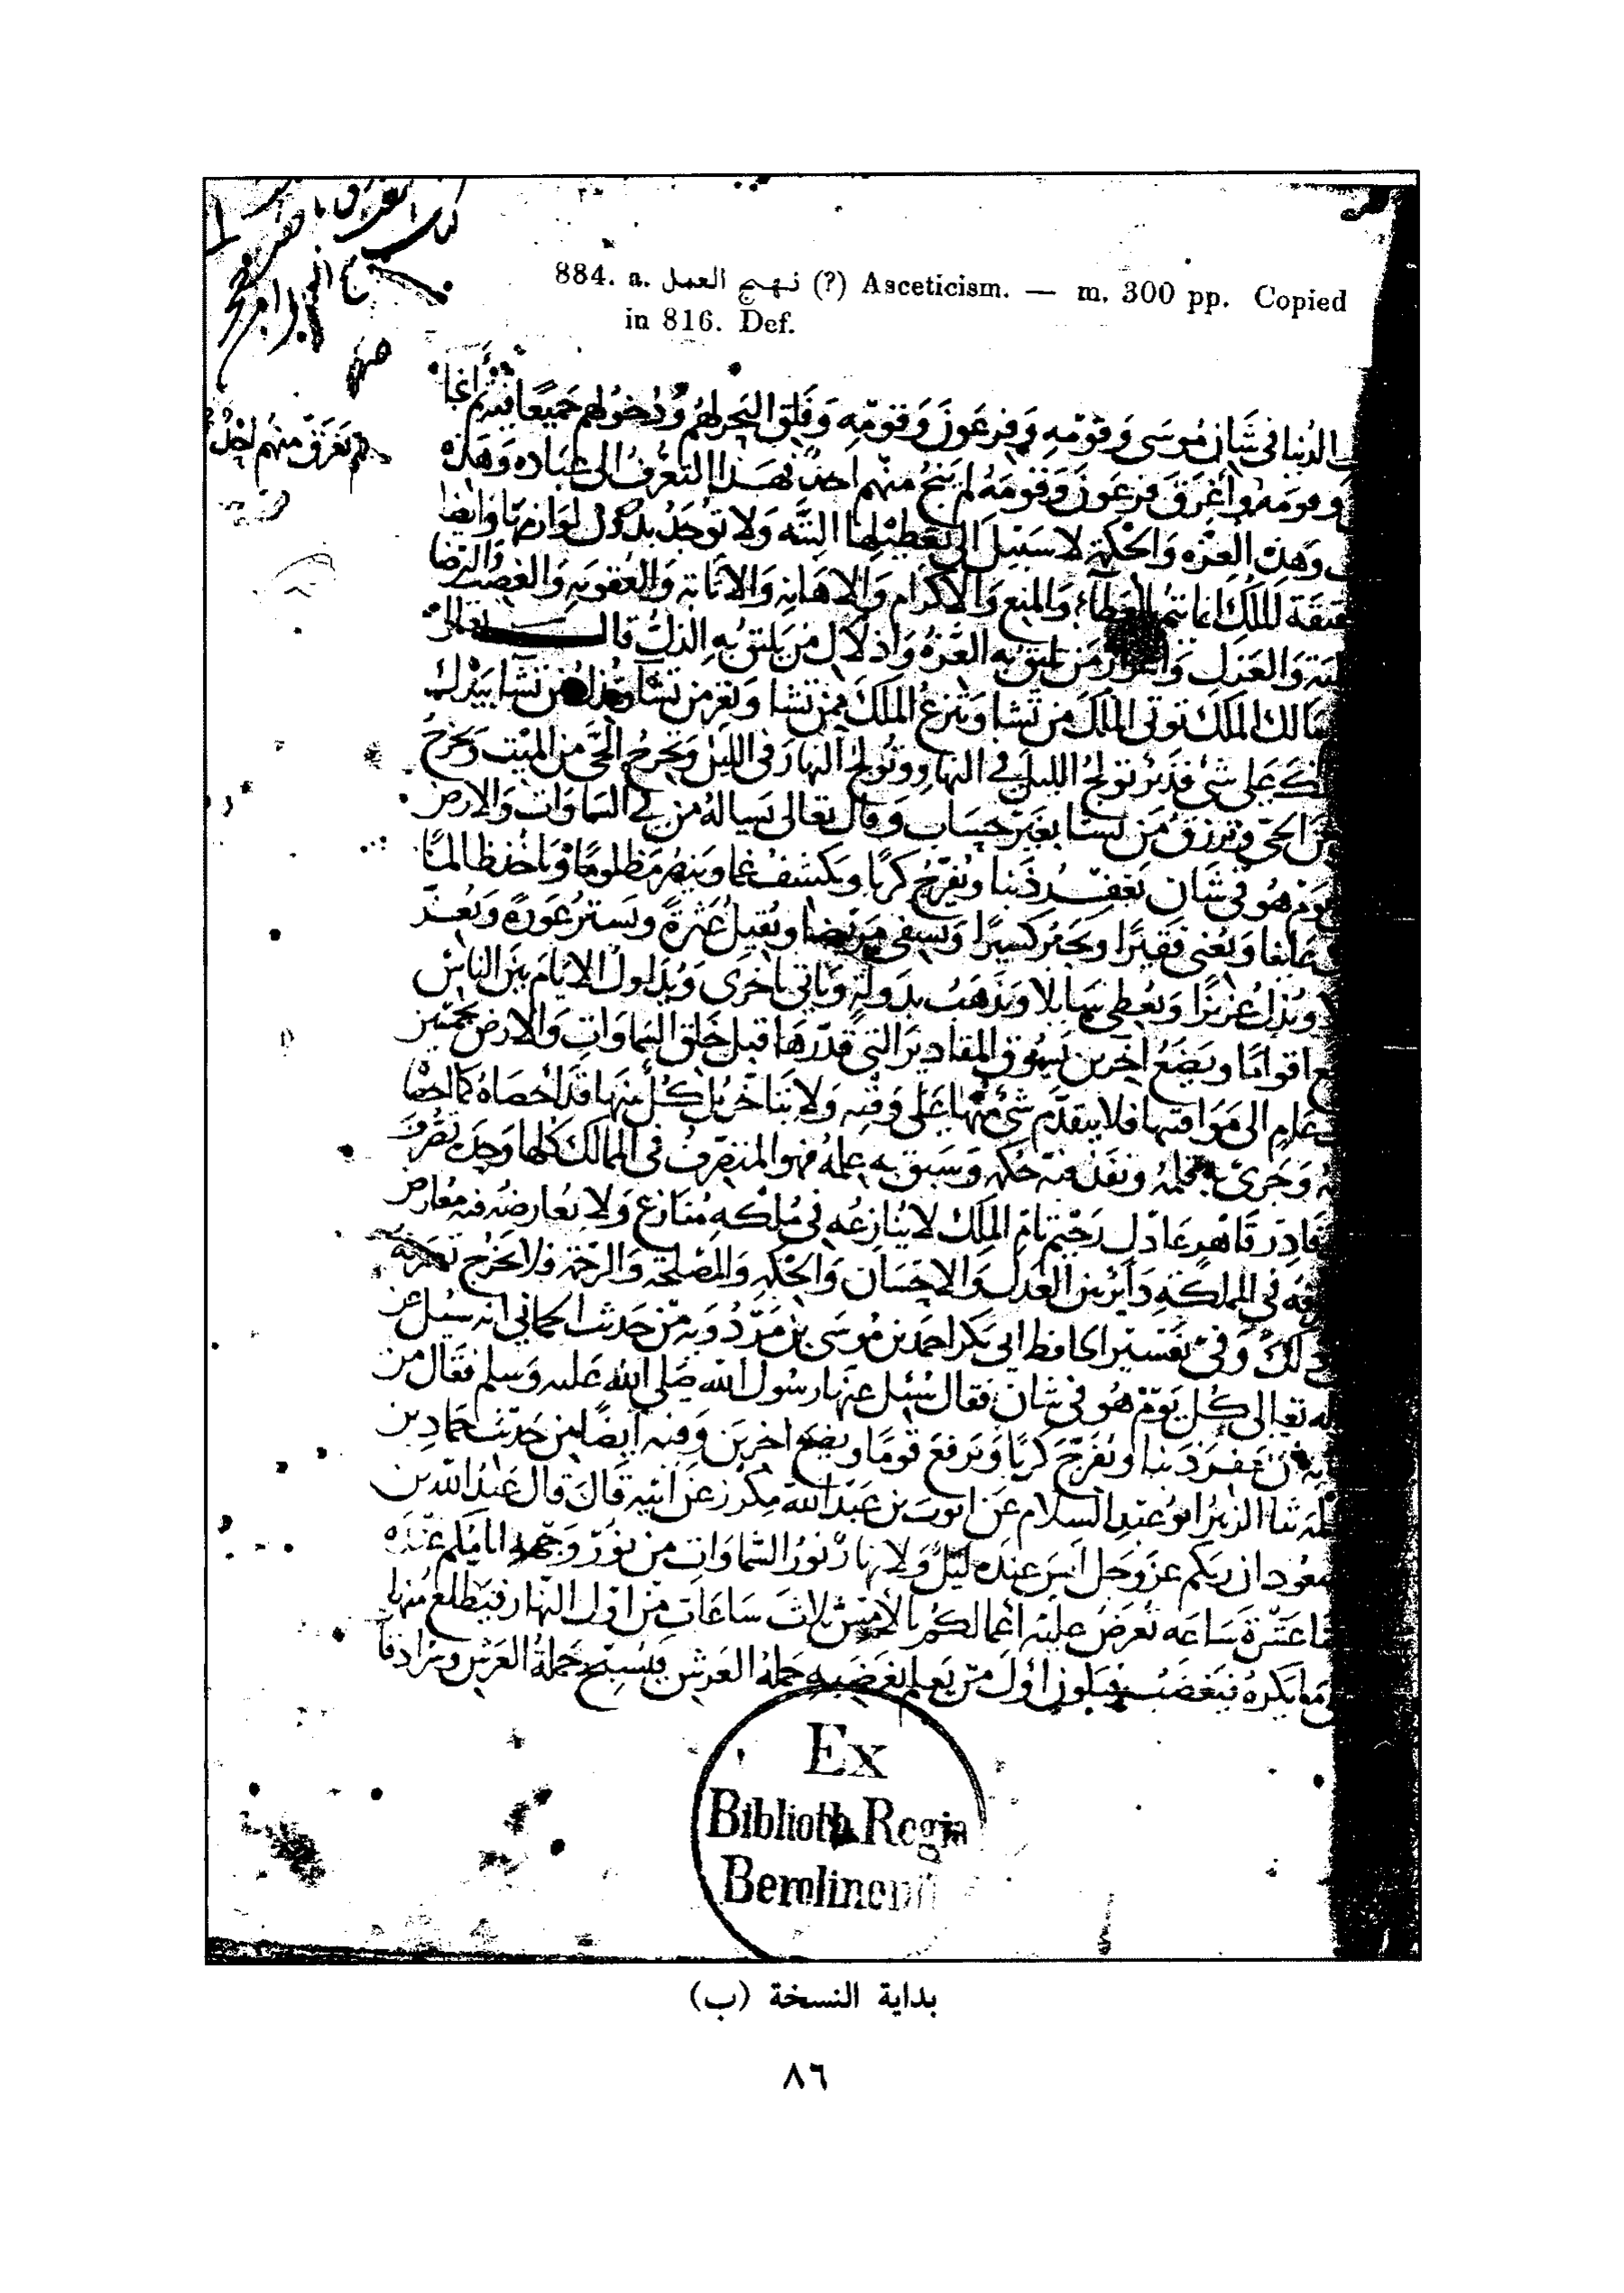 كتاب
884. a. نهج العمل (?) Asceticism. — m. 300 pp. Copied
in 816. Def.
الدنيا في شان موسى وقومه وفرعون وقومه وفلق البحر لهم ودخولهم جميعا فيه ثم انجا
وقومه واغرق فرعون وقومه لم ينج منهم احد فهذا التعرف الى عباده وهذه
لم يغرق منهم احد
وهذه العزه والحكمة لا سبيل الى تعطيلها البته ولا توجد بدون لوازمها وايضا
حقيقة الملك انما تتم بالعطاء والمنع والاكرام والاهانه والاثابة والعقوبه والغضب والرضا
والعزل واعزاز من يليق به العزه واذلال من يليق به الذل قال تعالى
مالك الملك توتي الملك من تشا وتنزع الملك ممن تشا وتعز من تشا وتذل من تشا بيدك
انك على شئ قدير تولج الليل في النهار وتولج النهار في الليل وتخرج الحي من الميت وتخرج
من الحي وترزق من تشا بغير حساب وقال تعالى يساله من في السماوات والارض
يوم هو في شان يغفر ذنبا ويفرج كربا ويكشف غما وينصر مظلوما وياخذ ظالما
عانيا ويغني فقيرا ويجبر كسيرا ويشفي مريضا ويقيل عثرة ويستر عورة ويعز
ويذل عزيزا ويعطي سايلا ويذهب بدولة وياتي باخرى ويداول الايام بين الناس
اقواما ويضع اخرين يسوق المقادير التي قدرها قبل خلق السماوات والارض بخمسين
عام الى مواقيتها فلا يتقدم شئ منها على وقته ولا يتاخر بل كل منها قد احصاه كما احصا
وجرى به قلمه ونفذ فيه حكمه وسبق به علمه فهو المتصرف في الممالك كلها وحده تصرف
قادر قاهر عادل رحيم تام الملك لا ينازعه في ملكه منازع ولا يعارضه فيه معارض
في المملكة دائر بين العدل والاحسان والحكمه والمصلحة والرحمة فلا يخرج تصرفه
ذلك وفي تفسير الحافظ ابي بكر احمد بن موسى بن مردويه من حديث الحماني انه سئل عن
تعالى كل يوم هو في شان فقال سئل عنها رسول الله صلى الله عليه وسلم فقال من
ان يغفر ذنبا ويفرج كربا ويرفع قوما ويضع اخرين وفيه ايضا من حديث حماد بن
ثنا الزبير ابو عبد السلام عن ايوب بن عبد الله مكرز عن ابيه قال قال عبد الله بن
مسعود ان ربكم عز وجل ليس عنده ليل ولا نهار نور السماوات من نور وجهه ايامكم عنده
عشرة ساعه تعرض عليه اعمالكم بالامس ثلاث ساعات من اول النهار فيطلع منها
ما يكره فيغضب فيكون اول من يعلم بغضبه حملة العرش فيسبح حملة العرش وسرادقا
Ex
Biblioth. Regia
Berolinenſi
بداية النسخة (ب)
٨٦